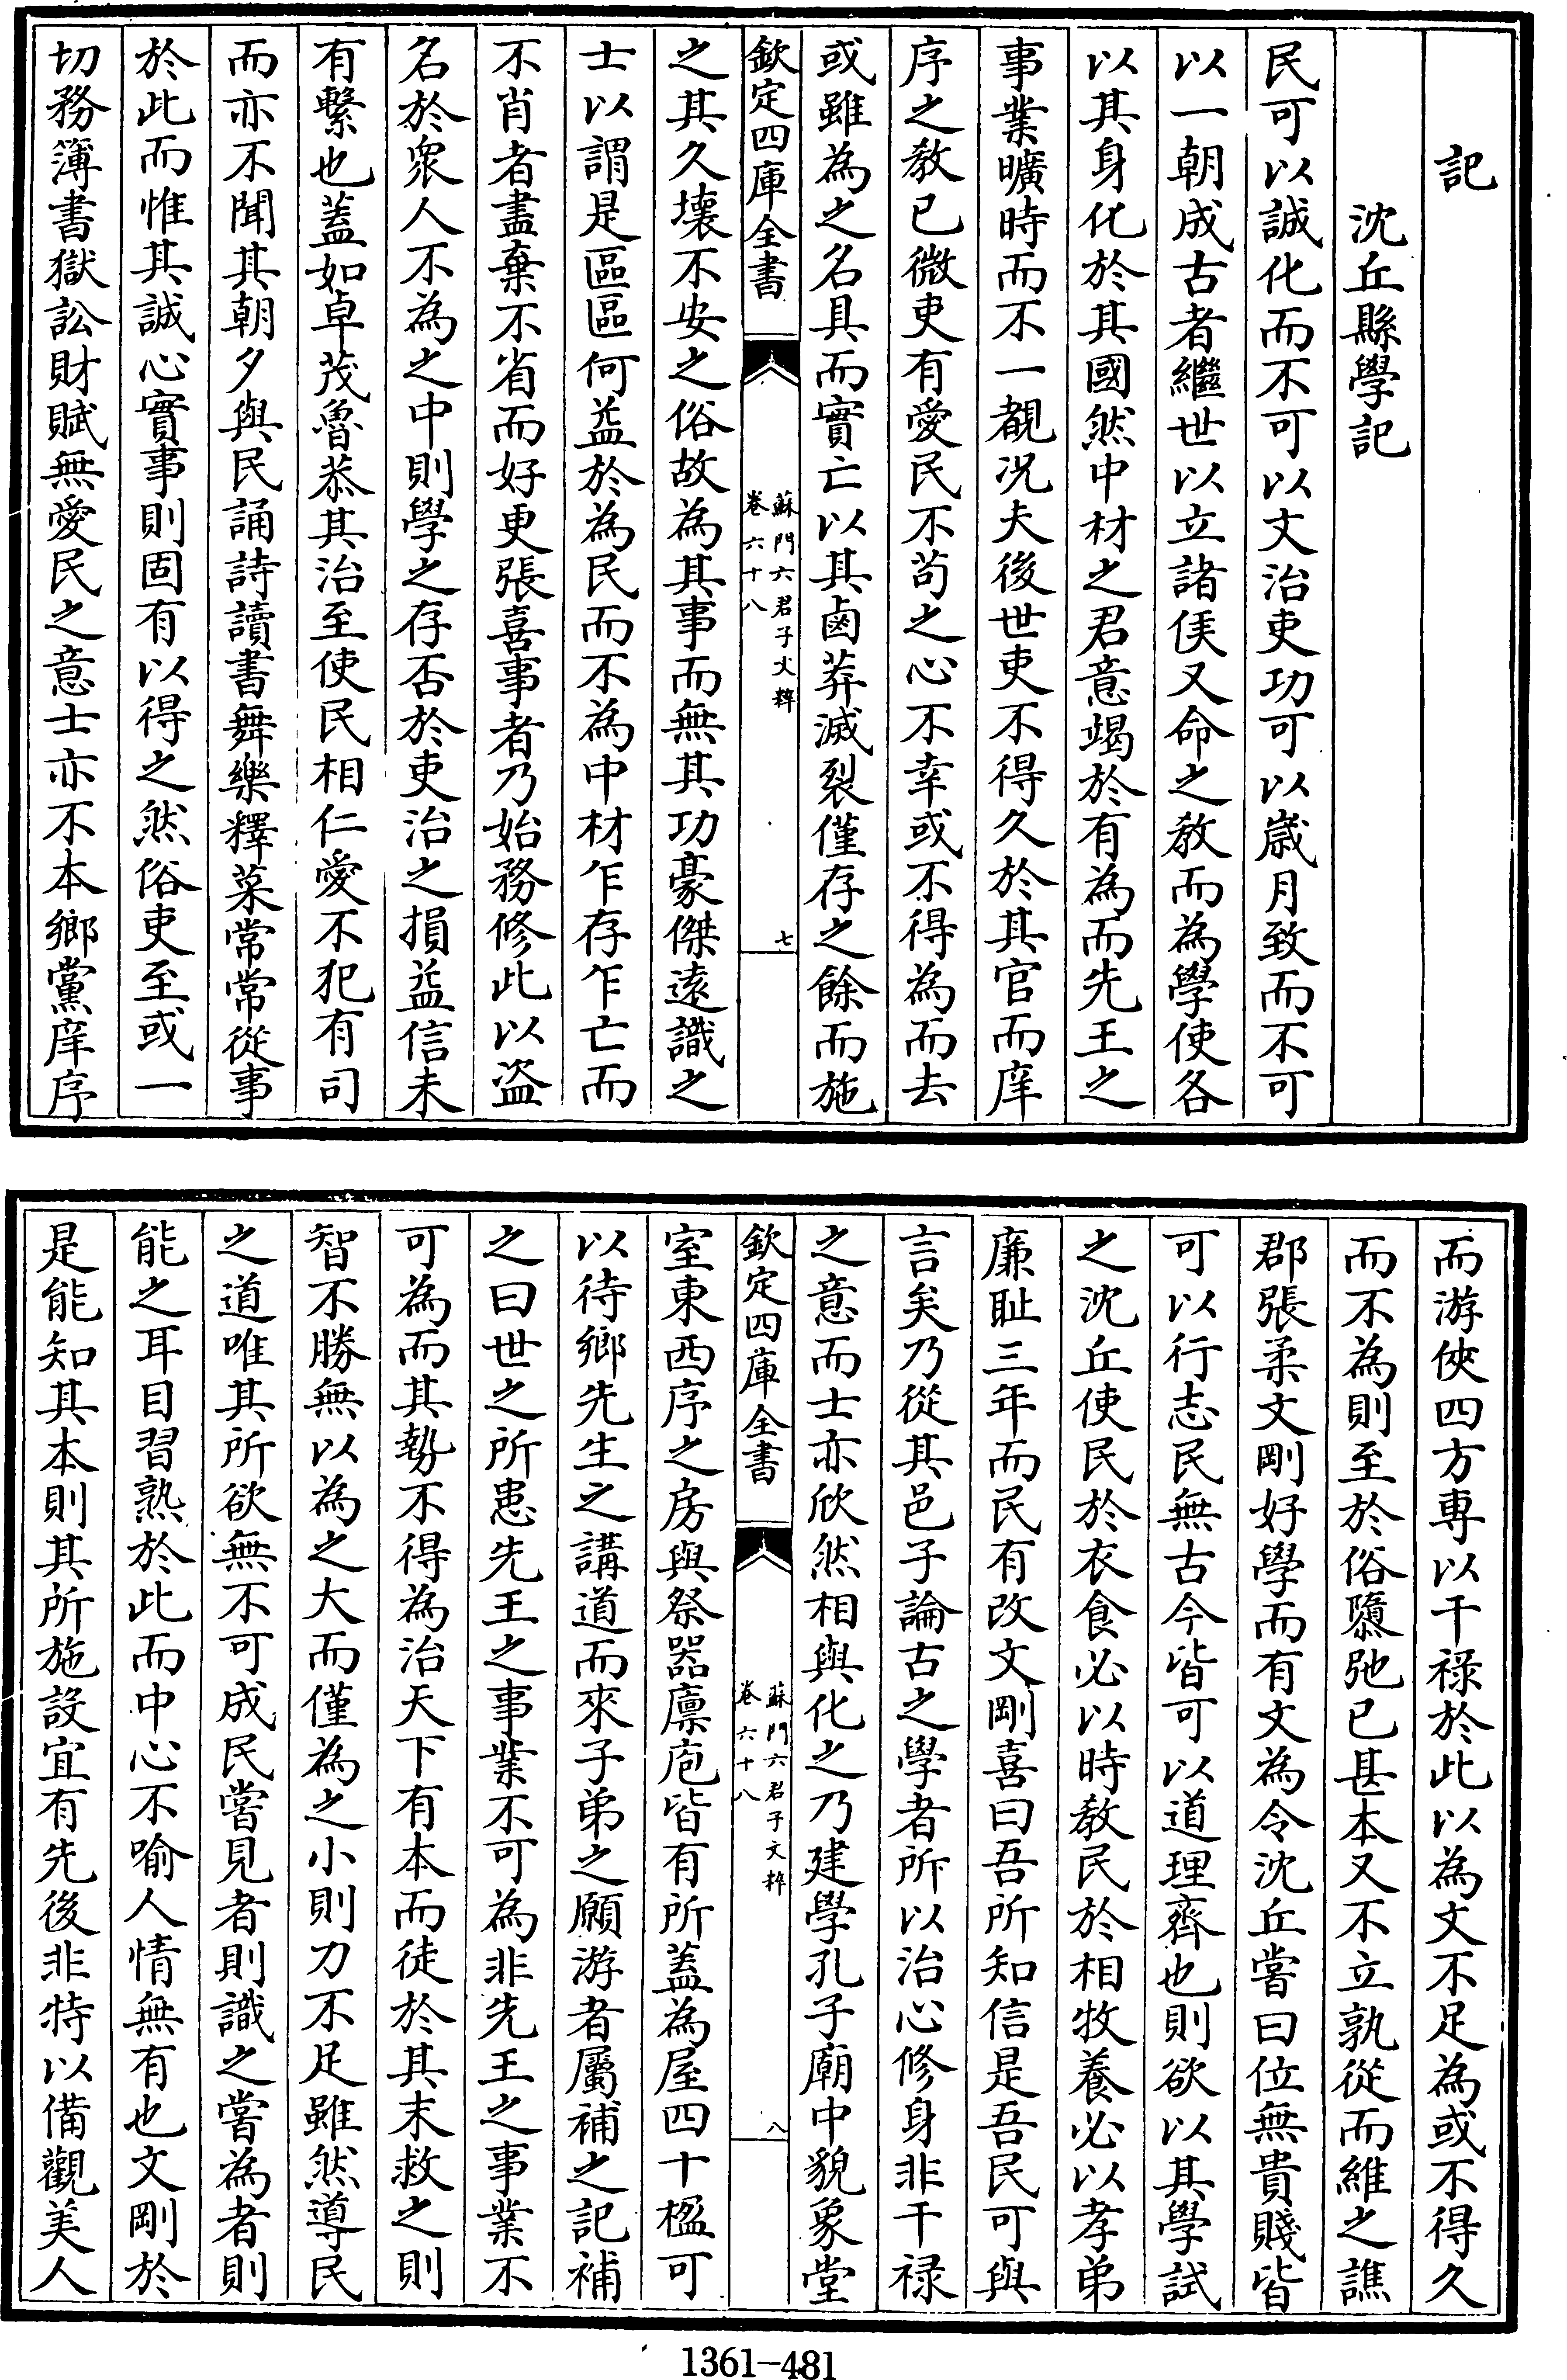 記
沈丘縣學記
民可以誠化而不可以文治吏功可以歳月致而不可
以一朝成古者繼世以立諸侯又命之教而為學使各
以其身化於其國然中材之君意竭於有為而先王之
事業曠時而不一覩况夫後世吏不得久於其官而庠
序之教已微吏有愛民不茍之心不幸或不得為而去
或雖為之名具而實亡以其鹵莽滅裂僅存之餘而施
欽定四庫全書
蘇門六君子文粹
卷六十八
七
之其久壊不安之俗故為其事而無其功豪傑逺識之
士以謂是區區何益於為民而不為中材乍存乍亡而
不肖者盡棄不省而好更張喜事者乃始務修此以盗
名於衆人不為之中則學之存否於吏治之損益信未
有繫也蓋如卓茂魯恭其治至使民相仁愛不犯有司
而亦不聞其朝夕與民誦詩讀書舞樂釋菜常常從事
於此而惟其誠心實事則固有以得之然俗吏至或一
切務簿書獄訟財賦無愛民之意士亦不本鄉黨庠序
而游俠四方専以干禄於此以為文不足為或不得久
而不為則至於俗隳弛已甚本又不立孰從而維之譙
郡張柔文剛好學而有文為令沈丘嘗曰位無貴賤皆
可以行志民無古今皆可以道理齊也則欲以其學試
之沈丘使民於衣食必以時教民於相牧養必以孝弟
廉耻三年而民有改文剛喜曰吾所知信是吾民可與
言矣乃從其邑子論古之學者所以治心修身非干禄
之意而士亦欣然相與化之乃建學孔子廟中貌象堂
欽定四庫全書
蘇門六君子文粹
卷六十八
八
室東西序之房與祭器廪庖皆有所蓋為屋四十楹可
以待鄉先生之講道而來子弟之願游者屬補之記補
之曰世之所患先王之事業不可為非先王之事業不
可為而其勢不得為治天下有本而徒於其末救之則
智不勝無以為之大而僅為之小則力不足雖然導民
之道唯其所欲無不可成民嘗見者則識之嘗為者則
能之耳目習熟於此而中心不喻人情無有也文剛於
是能知其本則其所施設宜有先後非特以備觀美人
1361-481